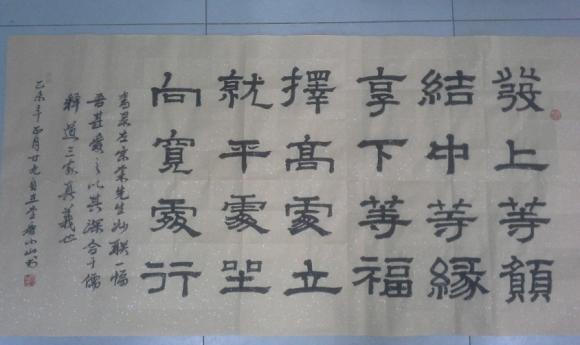 發上等願
結中等緣
享下等福
擇高處立
就平處坐
向寬處行
左宗棠先生妙联一幅
吾甚愛之以其深合于儒
釋道三家真義也
乙未年正月廿九日